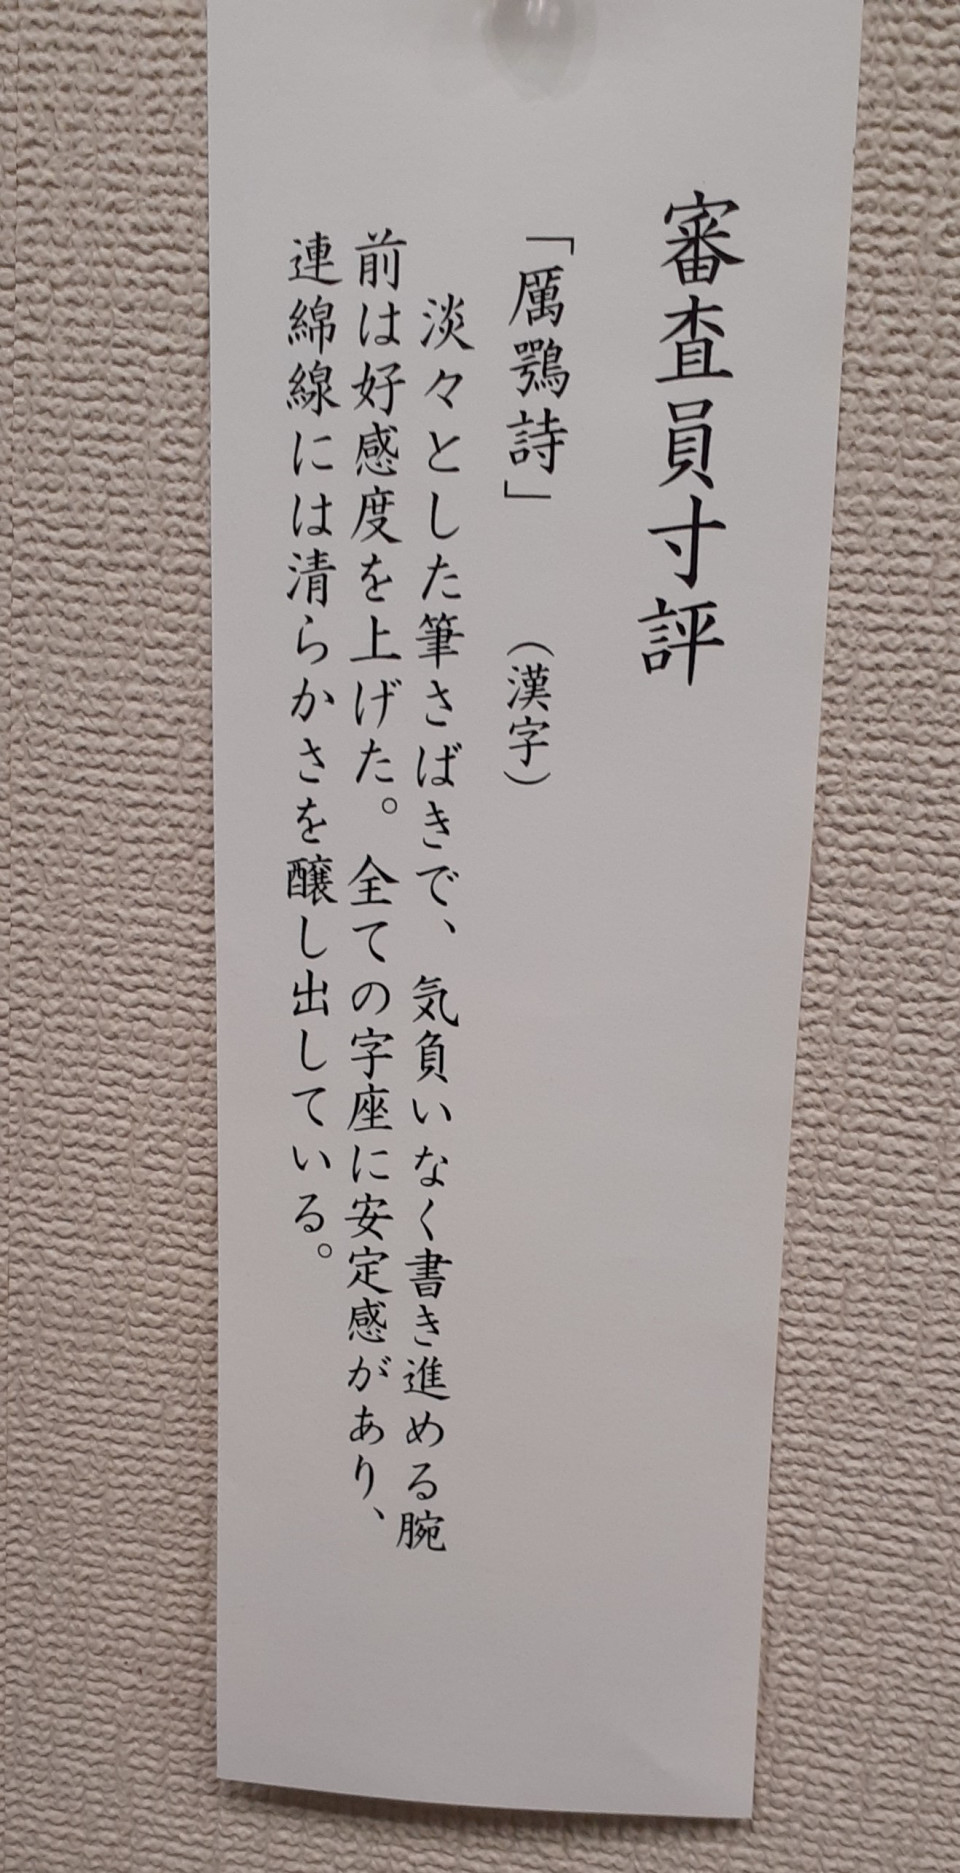 審査員寸評
「厲鶚詩」　（漢字）
淡々とした筆さばきで、気負いなく書き進める腕
前は好感度を上げた。全ての字座に安定感があり、
連綿線には清らかさを醸し出している。